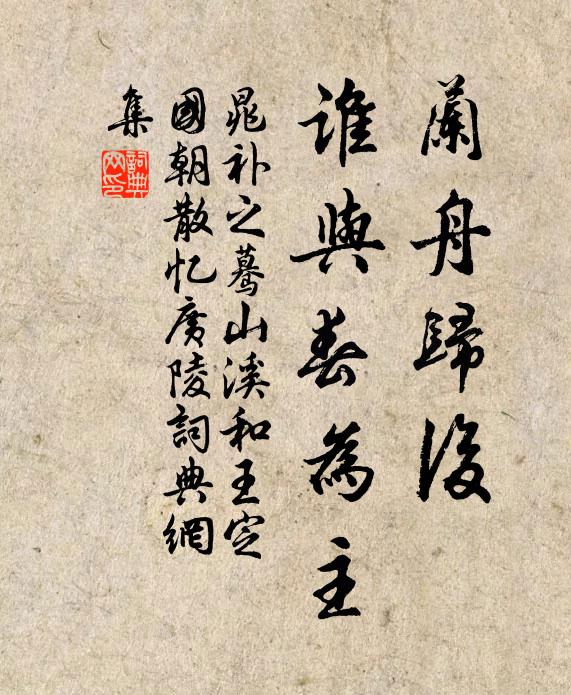 蘭舟歸後
誰與春為主
晁补之蓦山溪和王定
國朝散忆廣陵詞典網
集
詞典網印